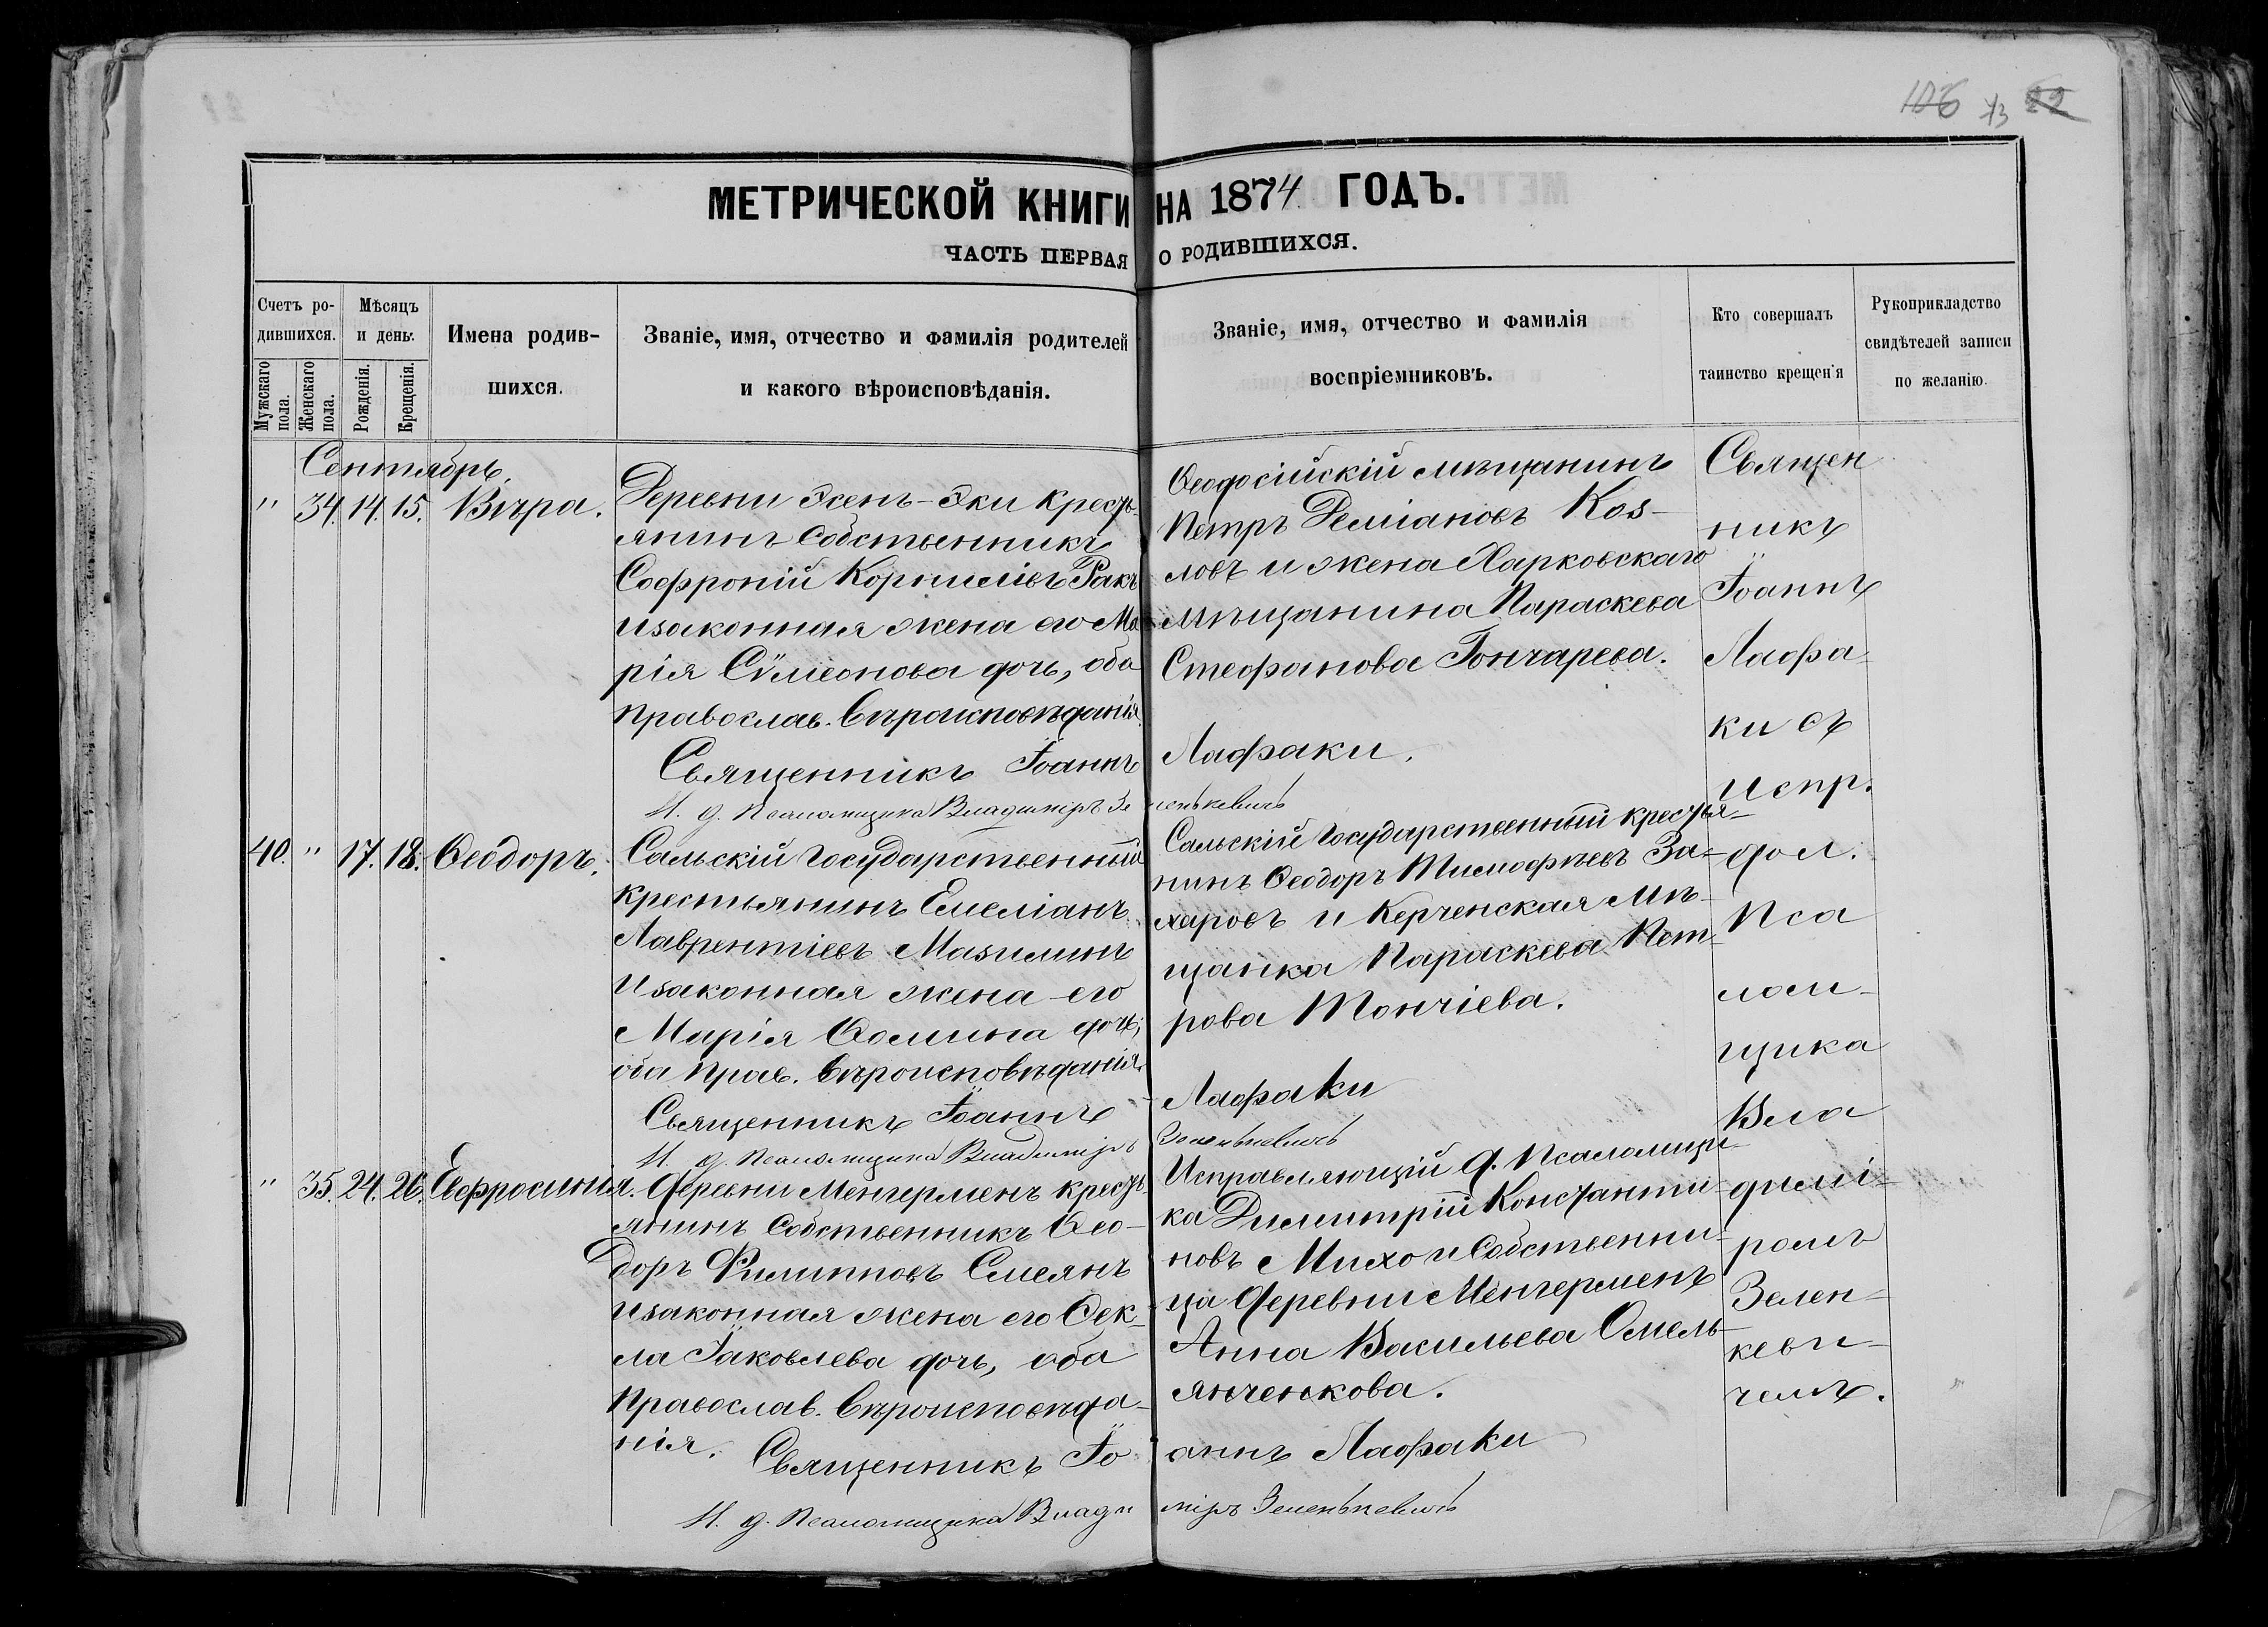 106 73 22
МЕТРИЧЕСКОЙ КНИГИ НА 1874 ГОДЪ.
ЧАСТЬ ПЕРВАЯ О РОДИВШИХСЯ.
Счетъ ро-
дившихся.
Мужскаго пола.
Женскаго пола.
Мѣсяцъ
и день.
Рожденія.
Крещенія.
Имена родив-
шихся.
Званіе, имя, отчество и фамилія родителей
и какого вѣроисповѣданія.
Званіе, имя, отчество и фамилія
воспріемниковъ.
Кто совершалъ
таинство крещенія
Рукоприкладство
свидѣтелей записи
по желанію.
Сентябрь.
" 34. 14. 15. Вѣра.
Деревни Эсень-Эки кресть-
янинъ собственникъ
Софроній Корниліевъ Ракъ
и законная жена его Ма
рія Сѵмеонова дочь, оба
православ. вѣроисповѣданія.
Священникъ Іоаннъ Лафаки.
И. д. Псаломщика Владиміръ Зеленькевичъ
Ѳеодосійскій мѣщанинъ
Петръ Деміановъ Коз-
ловъ и жена Харковскаго
мѣщанина Параскева
Стефанова Гончарева.
40. " 17. 18. Ѳеодоръ.
Сальскій Государственный
крестьянинъ Емеліанъ
Лаврентіевъ Мазилинъ
и законная жена его
Марія Ѳомина дочь,
оба прав. вѣроисповѣданія.
Священникъ Іоаннъ Лафаки
И. д. Псаломщика Владиміръ Зеленькевичъ
Сальскій Государственный крестья-
нинъ Ѳеодоръ Тимофѣевъ За-
харовъ и Керченская мѣ-
щанка Параскева Пет-
рова Тончіева.
" 35. 24. 26. Евфросинія.
Деревни Менгерменъ кресть-
янинъ собственникъ Ѳео-
доръ Филипповъ Смеянъ
и законная жена его Ѳек-
ла Іаковлева дочь, оба
православ. вѣроисповѣда-
нія.
Священникъ Іоаннъ Лафаки
И. д. Псаломщика Владиміръ Зеленькевичъ
Исправляющій д. Псаломщи-
ка Димитрій Константи-
новъ Михо и собственни-
ца деревни Менгерменъ
Анна Васильева Омель-
янченкова.
Священ
никъ
Іоаннъ
Лафа-
ки съ
испр.
дол.
Пса
лом-
щика
Вла
димі-
ромъ
Зелен-
кеви-
чемъ.